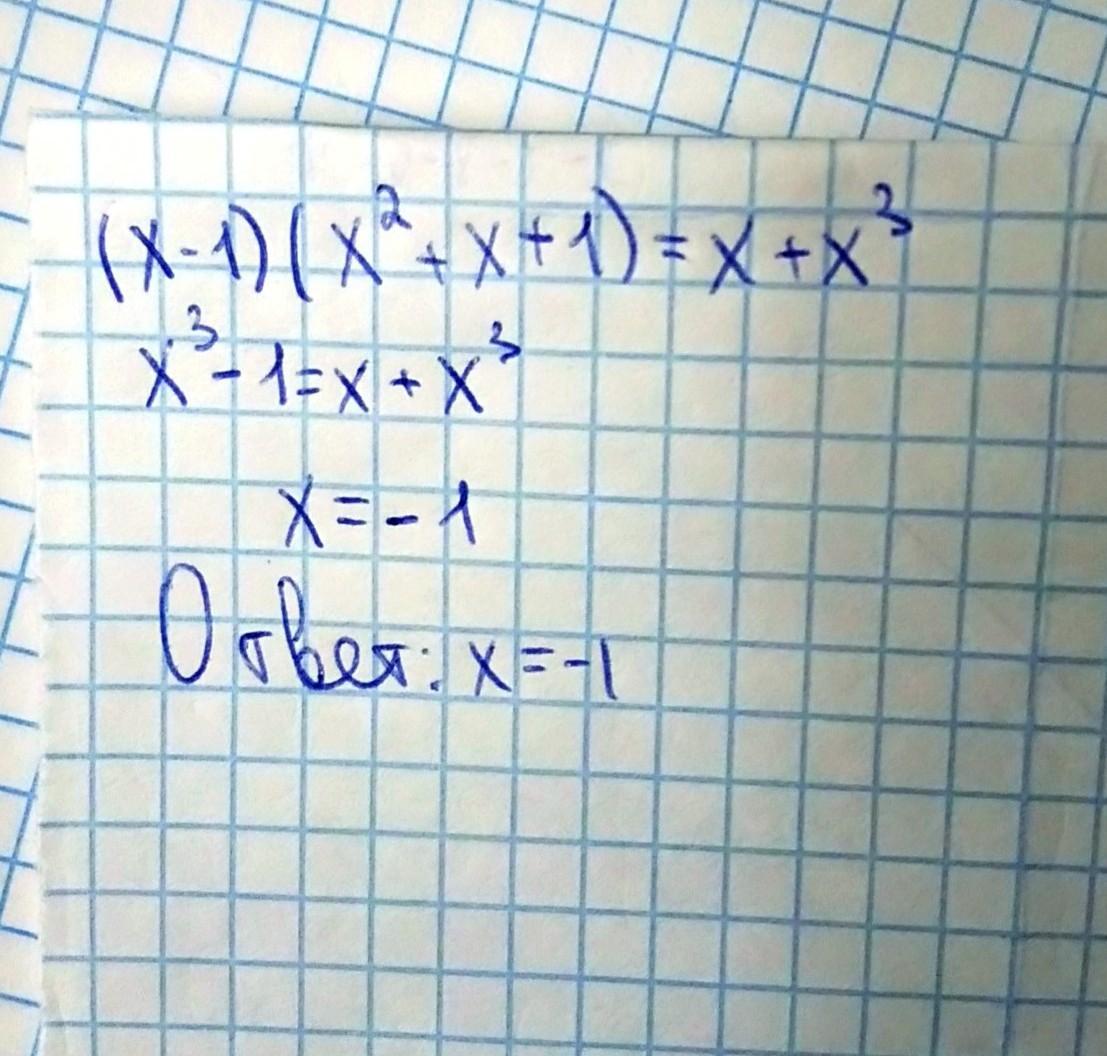 (x-1)(x²+x+1)=x+x³
x³-1=x+x³
x=-1
Ответ: x=-1